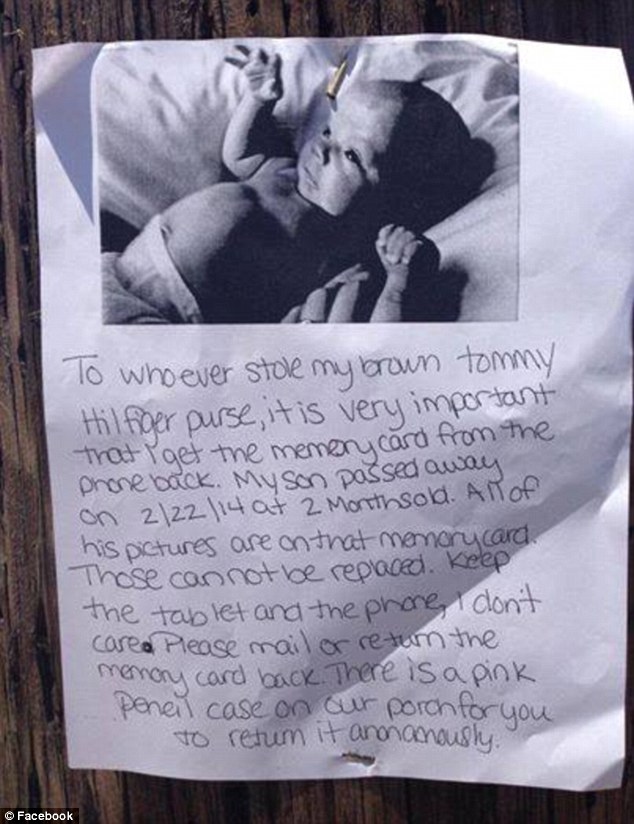 To whoever stole my brown tommy
Hilfiger purse, it is very important
that I get the memory card from the
phone back. My son passed away
on 2/22/14 at 2 Months old. All of
his pictures are on that memory card.
Those cannot be replaced. Keep
the tablet and the phone, I don't
care. Please mail or return the
memory card back. There is a pink
Pencil case on our porch for you
to return it annamously.
© Facebook